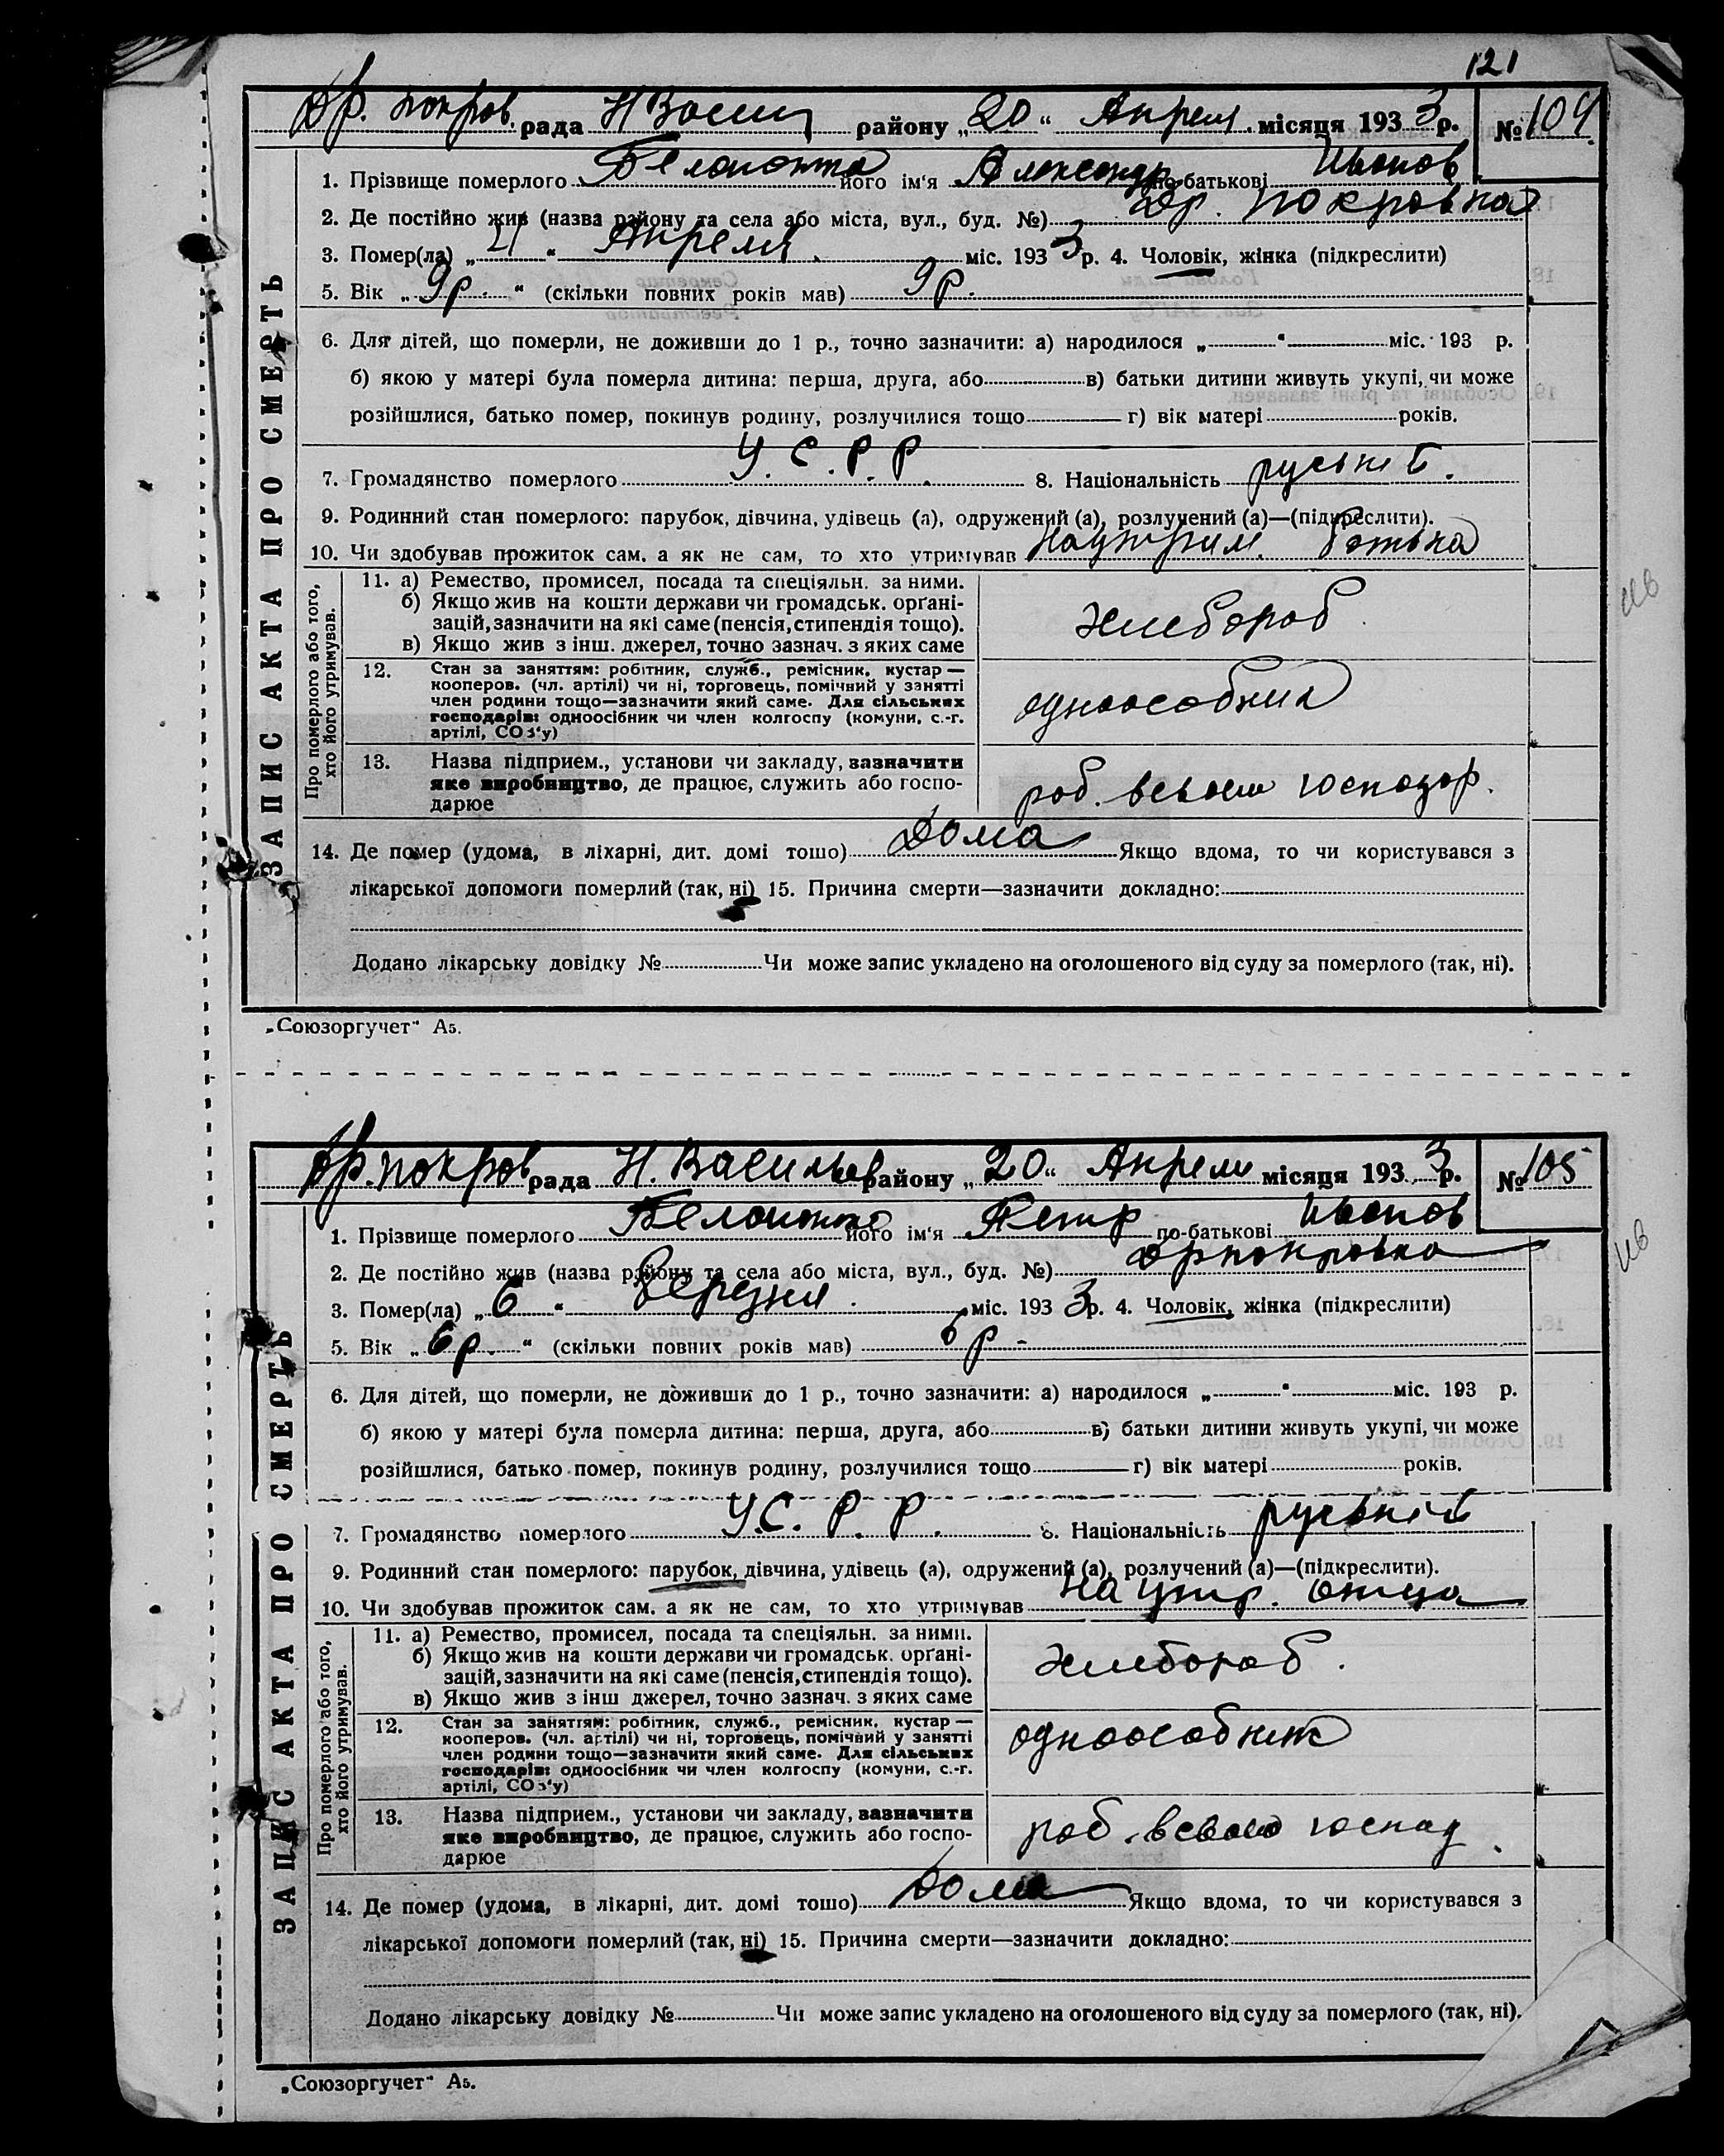 121
Др. покров. рада Н Васил району „20“ Апреля місяця 1933 р. № 104
1. Прізвище померлого його ім‘я Александр по-батькові Иванов
2. Де постійно жив (назва району та села або міста, вул., буд. №) Др. покровка
3. Помер(ла) „ “ Апреля міс. 1933 р. 4. Чоловік, жінка (підкреслити)
5. Вік „9 р. “ (скільки повних років мав) 9 р.
6. Для дітей, що померли, не доживши до 1 р., точно зазначити: а) народилося „ “ міс. 193 р.
б) якою у матері була померла дитина: перша, друга, або в) батьки дитини живуть укупі, чи може
розійшлися, батько помер, покинув родину, розлучилися тощо г) вік матері років.
7. Громадянство померлого У. С. Р. Р. 8. Національність
9. Родинний стан померлого: парубок, дівчина, удівець (а), одружений (а), розлучений (а)—(підкреслити).
10. Чи здобував прожиток сам. а як не сам, то хто утримував На утрим. батька
ЗАПИС АКТА ПРО СМЕРТЬ
Про померлого або того,
хто його утримував.
11. а) Ремество, промисел, посада та спеціяльн. за ними.
б) Якщо жив на кошти держави чи громадськ. орґані-
зацій, зазначити на які саме (пенсія, стипендія тощо).
в) Якщо жив з інш. джерел, точно зазнач. з яких саме
хлебороб
12. Стан за заняттям: робітник, служб., ремісник, кустар —
кооперов. (чл. артілі) чи ні, торговець, помічний у занятті
член родини тощо—зазначити який саме. Для сільських
господарів: одноосібник чи член колгоспу (комуни, с.-г.
артілі, СОЗ‘у)
одноособник
13. Назва підприєм., установи чи закладу, зазначити
яке виробництво, де працює, служить або госпо-
дарює
роб. в своем господар.
14. Де помер (удома, в ліхарні, дит. домі тошо) Дома Якщо вдома, то чи користувався з
лікарської допомоги померлий (так, ні) 15. Причина смерти—зазначити докладно:
Додано лікарську довідку № Чи може запис укладено на оголошеного від суду за померлого (так, ні).
„Союзоргучет“ А5.
Др. покров рада Н. Васильев району „20“ Апреля місяця 1933 р. № 105
1. Прізвище померлого його ім‘я Петр по-батькові Иванов
2. Де постійно жив (назва району та села або міста, вул., буд. №) Дрпокровка
3. Помер(ла) „6 “ березня міс. 1933 р. 4. Чоловік, жінка (підкреслити)
5. Вік „6 р. “ (скільки повних років мав) 6 р -
6. Для дітей, що померли, не доживши до 1 р., точно зазначити: а) народилося „ “ міс. 193 р.
б) якою у матері була померла дитина: перша, друга, або в) батьки дитини живуть укупі, чи може
розійшлися, батько помер, покинув родину, розлучилися тощо г) вік матері років.
7. Громадянство померлого У.С. Р. Р. 8. Національність
9. Родинний стан померлого: парубок, дівчина, удівець (а), одружений (а), розлучений (а)—(підкреслити).
10. Чи здобував прожиток сам. а як не сам, то хто утримував На утр. отца
ЗАПИС АКТА ПРО СМЕРТЬ
Про померлого або того,
хто його утримував.
11. а) Ремество, промисел, посада та спеціяльн. за ними.
б) Якщо жив на кошти держави чи громадськ. орґані-
зацій, зазначити на які саме (пенсія, стипендія тощо).
в) Якщо жив з інш джерел, точно зазнач. з яких саме
хлебороб.
12. Стан за заняттям: робітник, служб., ремісник, кустар —
кооперов. (чл. артілі) чи ні, торговець, помічний у занятті
член родини тощо—зазначити який саме. Для сільських
господарів: одноосібник чи член колгоспу (комуни, с.-г.
артілі, СОЗ‘у)
одноособник
13. Назва підприєм., установи чи закладу, зазначити
яке виробництво, де працює, служить або госпо-
дарює
роб. в своем господ.
14. Де помер (удома, в лікарні, дит. домі тошо) Дома Якщо вдома, то чи користувався з
лікарської допомоги померлий (так, ні) 15. Причина смерти—зазначити докладно:
Додано лікарську довідку № Чи може запис укладено на оголошеного від суду за померлого (так, ні).
„Союзоргучет“ А5.